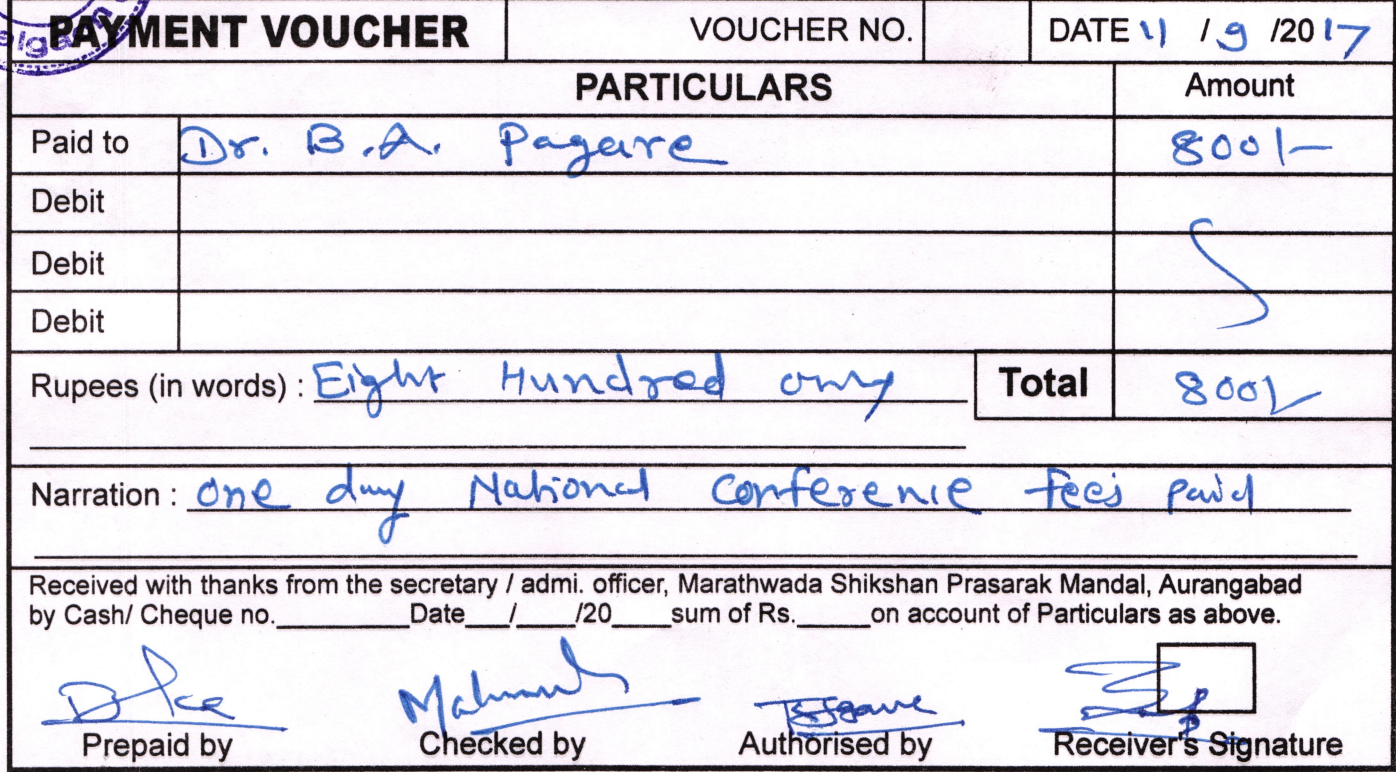 PAYMENT VOUCHER VOUCHER NO. DATE 11 / 9 /2017
PARTICULARS Amount
Paid to Dr. B.A. Pagare 800/-
Debit
Debit
Debit
Rupees (in words) : Eight Hundred only Total 800/-
Narration : one day National Conference fees paid
Received with thanks from the secretary / admi. officer, Marathwada Shikshan Prasarak Mandal, Aurangabad
by Cash/ Cheque no.__________Date___/____/20____sum of Rs._____on account of Particulars as above.
Prepaid by Checked by Authorised by Receiver's Signature